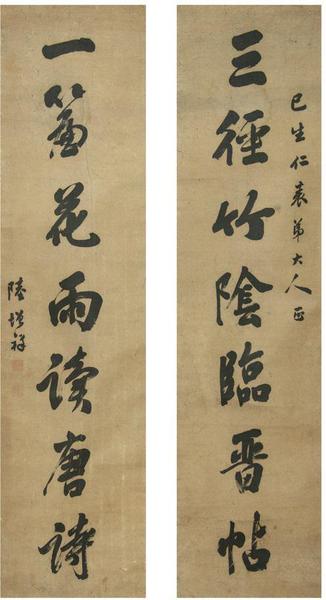 三徑竹陰臨晉帖
巳生仁袁弟大人正
一簾花雨讀唐詩
陸增祥